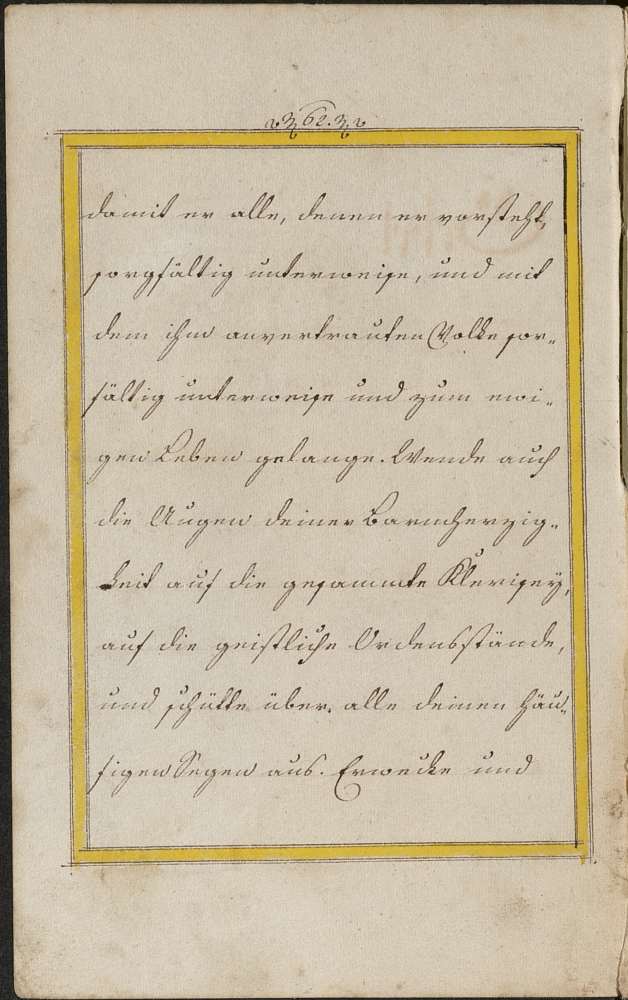 62.
damit er alle, denen er vorsteht,
sorgfältig unterweise, und mit
dem ihm anvertrauten Volke sor-
fältig unterweise und zum ewi-
gen Leben gelange. Wende auch
die Augen deiner Barmherzig-
keit auf die gesammte Klerisey,
auf die geistliche Ordensstände,
und schütte über alle deinen häu-
figen Segen aus. Erwecke und